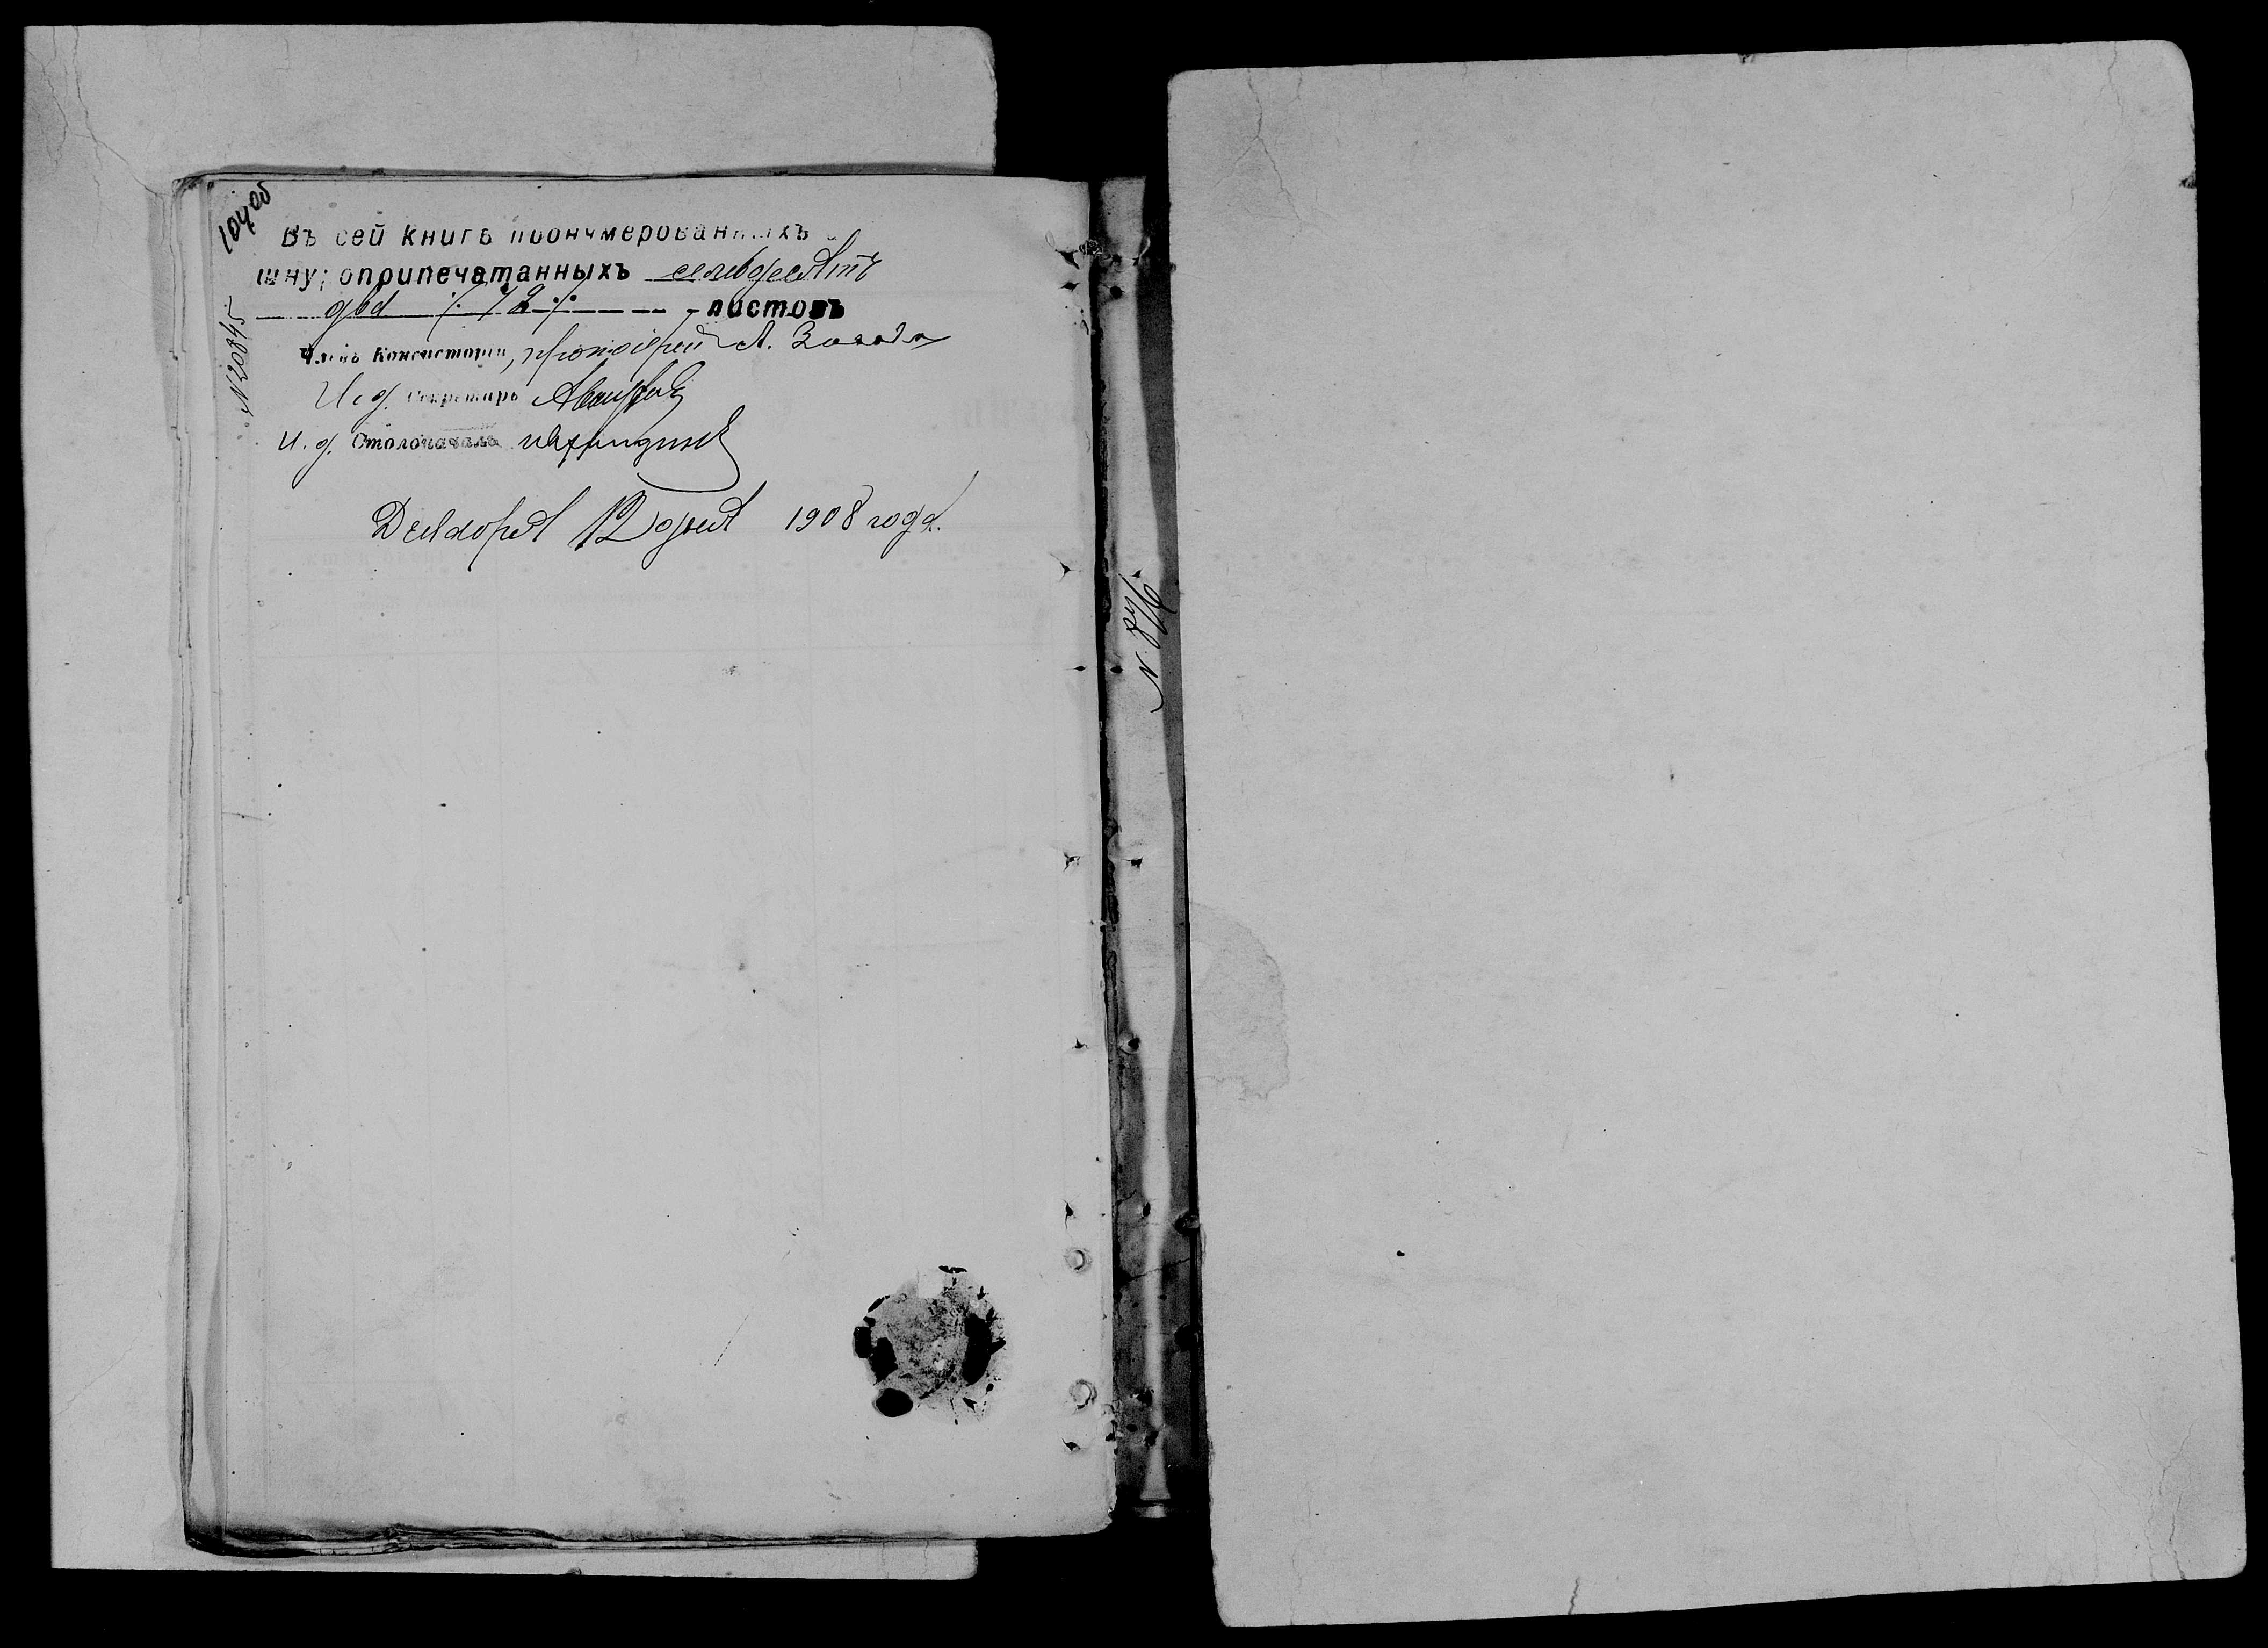 104 об
Въ сей книгѣ пронумерованныхъ
шнуроприпечатанныхъ семьдесятъ
два /.72./ листовъ
Членъ Консисторіи, протоіерей А.
И. д. Секретарь
И. д. Столоначаль
Декабря 12 дня 1908 года.
№ 20845
№ 876